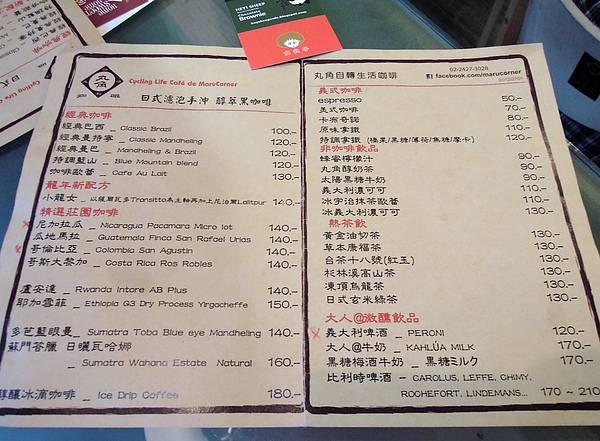 HEY! SHEEP
Chocolate
Brownie
丸角
Cycling Life Café de MaruCorner
日式濾泡手沖 醇萃黑咖啡
經典咖啡
經典巴西 _ Classic Brazil 100.-
經典曼特寧 _ Classic Mandheling 120.-
經典曼巴 _ Mandheling & Brazil 120.-
特調藍山 _ Blue Mountain blend 120.-
咖啡歐蕾 _ Cafe Au Lait 130.-
龍年新配方
小龍女 _ 以薩爾瓦多Transitto為主軸再加上尼泊爾Lalitpur 140.-
精選莊園咖啡
尼加拉瓜 _ Nicaragua Pacamara Micro lot 140.-
瓜地馬拉 _ Guatemala Finca San Rafael Urias 140.-
哥倫比亞 _ Colombia San Agustin 140.-
哥斯大黎加 _ Costa Rica Ros Robles 140.-
盧安達 _ Rwanda Intore AB Plus 140.-
耶加雪菲 _ Ethiopia G3 Dry Process Yirgacheffe 150.-
多芭藍眼曼_ Sumatra Toba Blue eye Mandheling 140.-
蘇門答臘 日曬瓦哈娜
_ Sumatra Wahana Estate Natural 160.-
醇釀冰滴咖啡 _ Ice Drip Coffee 180.-
丸角自轉生活咖啡 02-2427-3028
facebook.com/marucorner
義式咖啡
espresso 50.-
美式咖啡 70.-
卡布奇諾 80.-
原味拿鐵 110.-
特調拿鐵 (榛果/黑糖/薄荷/焦糖/摩卡) 120.-
非咖啡飲品
蜂蜜檸檬汁 90.-
丸角醇奶茶 90.-
太陽黑糖牛奶 90.-
義大利濃可可 110.-
冰宇治抹茶歐蕾 110.-
冰義大利濃可可 130.-
熱茶飲
黃金油切茶 130.-
草本康福茶 130.-
台茶十八號(紅玉) 130.-
杉林溪高山茶 130.-
凍頂烏龍茶 130.-
日式玄米綠茶 130.-
大人@微醺飲品
義大利啤酒 _ PERONI 120.-
大人@牛奶 _ KAHLÚA MILK 170.-
黑糖梅酒牛奶 _ 黒糖ミルク 170.-
比利時啤酒 - CAROLUS, LEFFE, CHIMY,
ROCHEFORT, LINDEMANS... 170 ~ 210